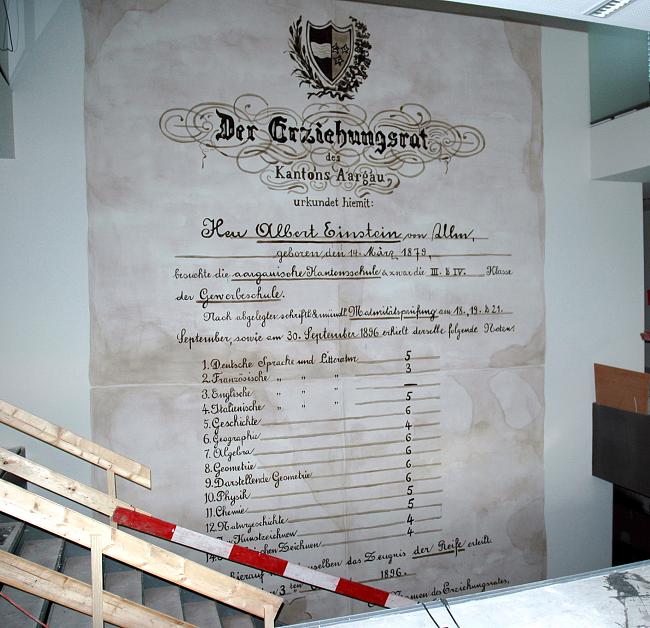 Der Erziehungsrat
des
Kantons Aargau
urkundet hiemit:
Herr Albert Einstein von Ulm,
geboren den 14. März 1879,
besuchte die aargauische Kantonsschule & zwar die III. & IV. Klasse
der Gewerbeschule.
Nach abgelegter schriftl. & mündl. Maturitätsprüfung am 18., 19. & 21.
September, sowie am 30. September 1896 erhielt derselbe folgende Noten:
1. Deutsche Sprache und Litteratur 5
2. Französische " " " 3
3. Englische " " " —
4. Italienische " " " 5
5. Geschichte 6
6. Geographie 4
7. Algebra 6
8. Geometrie 6
9. Darstellende Geometrie 6
10. Physik 6
11. Chemie 5
12. Naturgeschichte 5
Kunstzeichnen 4
14. Zeichnen 4
hierauf demselben das Zeugnis der Reife erteilt.
3ten 1896.
Namen des Erziehungsrates,